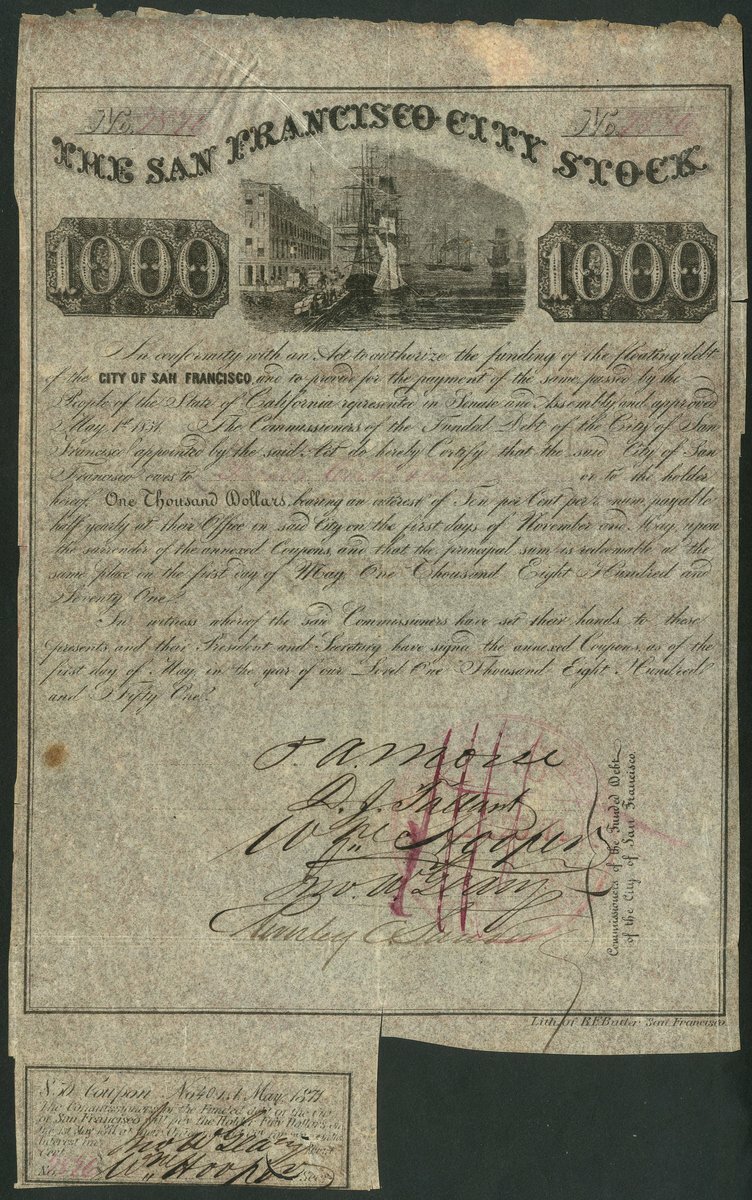 No.
No.
THE SAN FRANCISCO CITY STOCK
1000
1000
In conformity with an Act to authorize the funding of the floating debt
of the CITY OF SAN FRANCISCO, and to provide for the payment of the same, passed by the
People of the State of California represented in Senate and Assembly, and approved
May 1st 1851. The Commissioners of the Funded Debt of the City of San
Francisco appointed by the said Act do hereby Certify that the said City of San
Francisco owes to or to the holder
hereof, One Thousand Dollars, bearing an interest of Ten per Cent per annum, payable
half yearly at their Office in said City, on the first days of November and May, upon
the surrender of the annexed Coupons, and that the principal sum is redeemable at the
same place on the first day of May, One Thousand Eight Hundred and
Seventy One.
In witness whereof the said Commissioners have set their hands to these
presents and their President and Secretary have signed the annexed Coupons, as of the
first day of May, in the year of our Lord One Thousand Eight Hundred
and Fifty One.
P. A. Morse
D. J. Tallant
Wm Hooper
Jno. W. Geary
Commissioners of the Funded Debt
of the City of San Francisco.
Lith. of B.F. Butler San Francisco.
Coupon No 40 1st May 1871
The Commissioners of the Funded debt of the City
of San Francisco will pay the Holder Fifty Dollars on
the 1st May 1871 at their
Interest
Cent
Jno W Geary
No.
Wm Hooper Secy